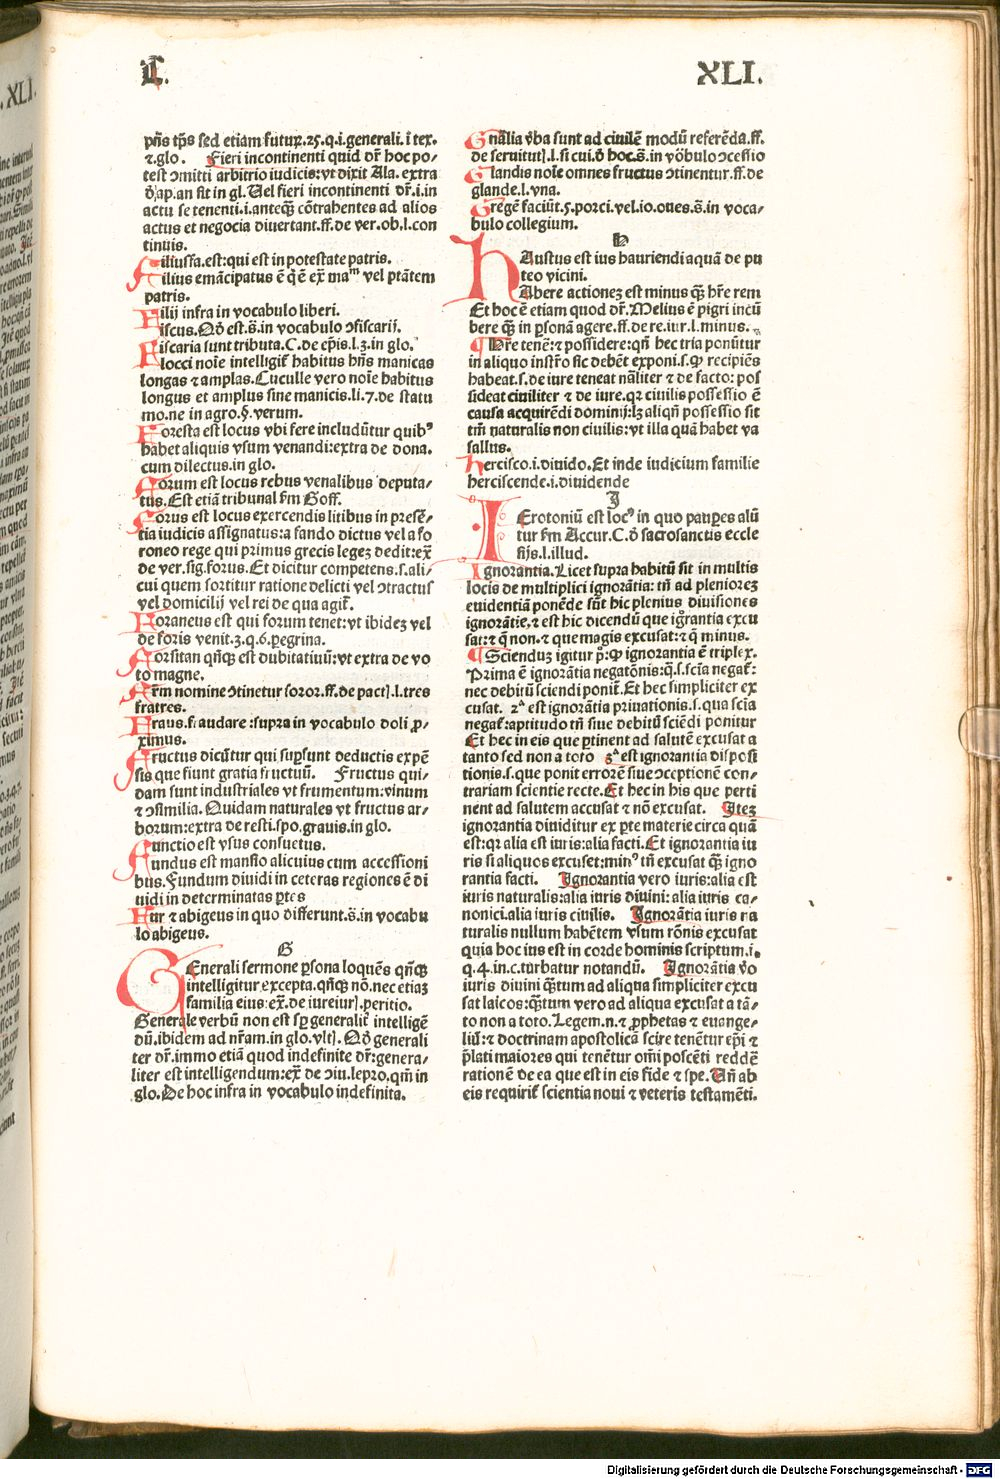 L.
XLI.
pñs tp̃s sed etiam futuꝝ.25.q.i.generali.ĩ tex.
⁊.glo. Fieri incontinenti quid dr̃ hoc po⸗
test ↄmitti arbitrio iudicis:vt dixit Ala. extra
d̕.ap.an sit in gl. Uel fieri incontinenti dr̃.i.in
actu se tenenti.i.anteqꝫ cõtrahentes ad alios
actus et negocia diuertant.ff.de ver.ob.l.con
tinuis.
Filiusfa.est:qui est in potestate patris.
Filius emãcipatus ẽ q̃ ẽ ex̃ maᵐ vel ptãtem
patris.
Filij infra in vocabulo liberi.
Fiscus.Qd̕ est.s̃.in vocabulo ↄfiscarij.
Fiscaria sunt tributa.C.de ep̃is.l.3.in glo.
Flocci noĩe intelligiť habitus hñs manicas
longas ⁊ amplas.Cuculle vero noĩe habitus
longus et amplus sine manicis.li.7.de statu
mo.ne in agro.§.verum.
Foresta est locus vbi fere includũtur quibꝰ
habet aliquis vsum venandi:extra de dona.
cum dilectus.in glo.
Forum est locus rebus venalibus deputa⸗
tus.Est etiã tribunal s̃m Goff.
Forus est locus exercendis litibus in presẽ⸗
tia iudicis assignatus:a fando dictus vel a fo
roneo rege qui primus grecis legeꝫ dedit:ex̃
de ver.sig.forus.Et dicitur competens.s.ali⸗
cui quem sortitur ratione delicti vel ↄtractus
vel domicilij vel rei de qua agiť.
Foraneus est qui forum tenet:vt ibideꝫ vel
de foris venit.3.q.6.ꝑegrina.
Forsitan qñqꝫ est dubitatiuũ:vt extra de vo
to magne.
Fr̃m nomine ↄtinetur soror.ff.de pactꝭ.l.tres
fratres.
Fraus.fraudare:supra in vocabulo doli ꝓ⸗
ximus.
Fructus dicũtur qui suꝑsunt deductis expẽ
sis que fiunt gratia fructuũ. Fructus qui⸗
dam sunt industriales vt frumentum:vinum
⁊ ↄsimilia. Quidam naturales vt fructus ar⸗
borum:extra de resti.spo.grauis.in glo.
Functio est vsus consuetus.
Fundus est mansio alicuius cum accessioni
bus.Fundum diuidi in ceteras regiones ẽ di
uidi in determinatas ꝑtes
Fur ⁊ abigeus in quo differunt.s̃.in vocabu
lo abigeus.
G
GEnerali sermone ꝑsona loquẽs qñqꝫ
intelligitur excepta.qñqꝫ nõ.nec etiaꝫ
familia eius:ex̃.de iureiurꝭ.peritio.
Generale verbũ non est sp̃ generaliť intelligẽ
dũ.ibidem ad nr̃am.in glo.vltꝭ. Qd̕ generali
ter dr̃.immo etiã quod indefinite dr̃:genera⸗
liter est intelligendum:ex̃ de ↄiu.lepro.qm̃ in
glo.De hoc infra in vocabulo indefinita.
Gnãlia v̕ba sunt ad ciuilẽ modũ referẽda.ff.
de seruitutꝭ.l.si cui.d̕ hoc.s̃.in vo̕bulo ↄcessio
Glandis noĩe omnes fructus ↄtinentur.ff.de
glande.l.vna.
Gregẽ faciũt.5.porci.vel.10.oues.s̃.in voca⸗
bulo collegium.
H
hAustus est ius hauriendi aquã de pu
teo vicini.
HAbere actioneꝫ est minus qꝫ hr̃e rem
Et hoc ẽ etiam quod dr̃.Melius ẽ pigri incũ
bere qꝫ in ꝑsonã agere.ff.de re.iur.l.minus.
¶ Hr̃e tenẽ:⁊ possidere:qñ hec tria ponũtur
in aliquo instr̃o sic debẽt exponi.s.ꝙ recipiẽs
habeat.s.de iure teneat nãliter ⁊ de facto: pos
sideat ciuiliter ⁊ de iure.qꝛ ciuilis possessio ẽ
causa acquirẽdi dominij:lꝫ aliqñ possessio sit
tm̃ naturalis non ciuilis:vt illa quã habet va
sallus.
hercisco.i.diuido.Et inde iudicium familie
herciscende.i.diuidende
I
IErotoniũ est locꝰ in quo pauꝑes alũ
tur s̃m Accur.C.d̕ sacrosanctis eccle
sijs.l.illud.
Ignorantia.Licet supra habitũ sit in multis
locis de multiplici ignorãtia: tñ ad plenioreꝫ
euidentiã ponẽde sũt hic plenius diuisiones
ignorãtie,⁊ est hic dicendũ que igr̃antia excu
sat:⁊ q̃ non.⁊ que magis excusat:⁊ q̃ minus.
¶ Scienduꝫ igitur pᵒ:ꝙ ignorantia ẽ triplex.
Prima ẽ ignorãtia negatõnis:q̃.s.scĩa negať:
nec debitũ sciendi poniť.Et hec simpliciter ex
cusat. 2ª est ignorãtia priuationis.s.qua scĩa
negať:aptitudo tñ siue debitũ sciẽdi ponitur
Et hec in eis que ꝑtinent ad salutẽ excusat a
tanto sed non a toto 3ª est ignorantia disposi
tionis.s.que ponit errorẽ siue ↄceptionẽ con⸗
trariam scientie recte.Et hec in his que perti
nent ad salutem accusat ⁊ nõ excusat. Iteꝫ
ignorantia diuiditur ex ꝑte materie circa quã
est:qꝛ alia est iuris:alia facti.Et ignorantia iu
ris si aliquos excuset:minꝰ tñ excusat qꝫ igno
rantia facti. Ignorantia vero iuris:alia est
iuris naturalis:alia iuris diuini: alia iuris ca⸗
nonici.alia iuris ciuilis. Ignorãtia iuris na
turalis nullum habẽtem vsum rõnis excusat
quia hoc ius est in corde hominis scriptum.i.
q.4.in.c.turbatur notandũ. Ignorãtis v̕o
iuris diuini qꝫtum ad aliqua simpliciter excu
sat laicos:qꝫtum vero ad aliqua excusat a tã⸗
to non a toto.Legem.n.⁊ ꝓphetas ⁊ euange⸗
liũ:⁊ doctrinam apostolicã scire tenẽtur ep̃i ⁊
p̃lati maiores qui tenẽtur om̃i poscẽti reddẽ
rationẽ de ea que est in eis fide ⁊ spe.Uñ ab
eis requiriť scientia noui ⁊ veteris testamẽti.
Digitalisierung gefördert durch die Deutsche Forschungsgemeinschaft - DFG